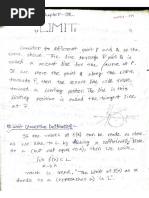 Chapter-02
LIMIT
Consider to different point P and Q on the
curve above. The line through P and Q is
called a secant line for the curve. If
we now move the point Q along the curve
toward the
toward a limiting position. The line in this
limiting position is called the tangent line
at P.
Limit (Intuitive Definition):
The values of f(x) can be made as close
as we like to L by taking x sufficiently close
to a (but not equal to a), then we write
lim f(x) = L
x→a
which is read "The limit of f(x) as x
tends to a (approaches a) is L".